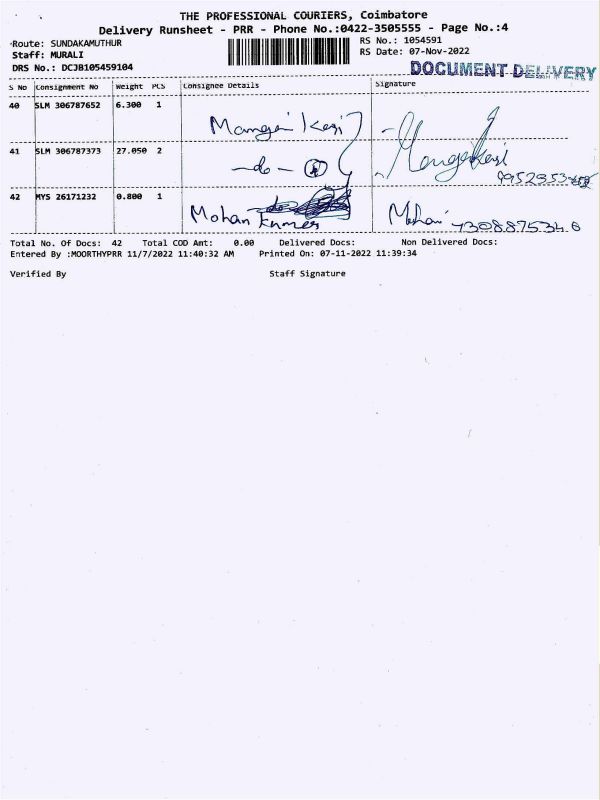 THE PROFESSIONAL COURIERS, Coimbatore
Delivery Runsheet - PRR - Phone No.:0422-3505555 - Page No.:4
Route: SUNDAKAMUTHUR
RS No.: 1054591
Staff: MURALI
RS Date: 07-Nov-2022
DRS No.: DCJB105459104
DOCUMENT DELIVERY
S No Consignment No Weight PCS Consignee Details Signature
40 SLM 306787652 6.300 1
41 SLM 306787373 27.050 2
-do- 
42 MYS 26171232 0.800 1
Mohan Kumar Mohan
Total No. Of Docs: 42 Total COD Amt: 0.00 Delivered Docs: Non Delivered Docs:
Entered By :MOORTHYPRR 11/7/2022 11:40:32 AM Printed On: 07-11-2022 11:39:34
Verified By Staff Signature